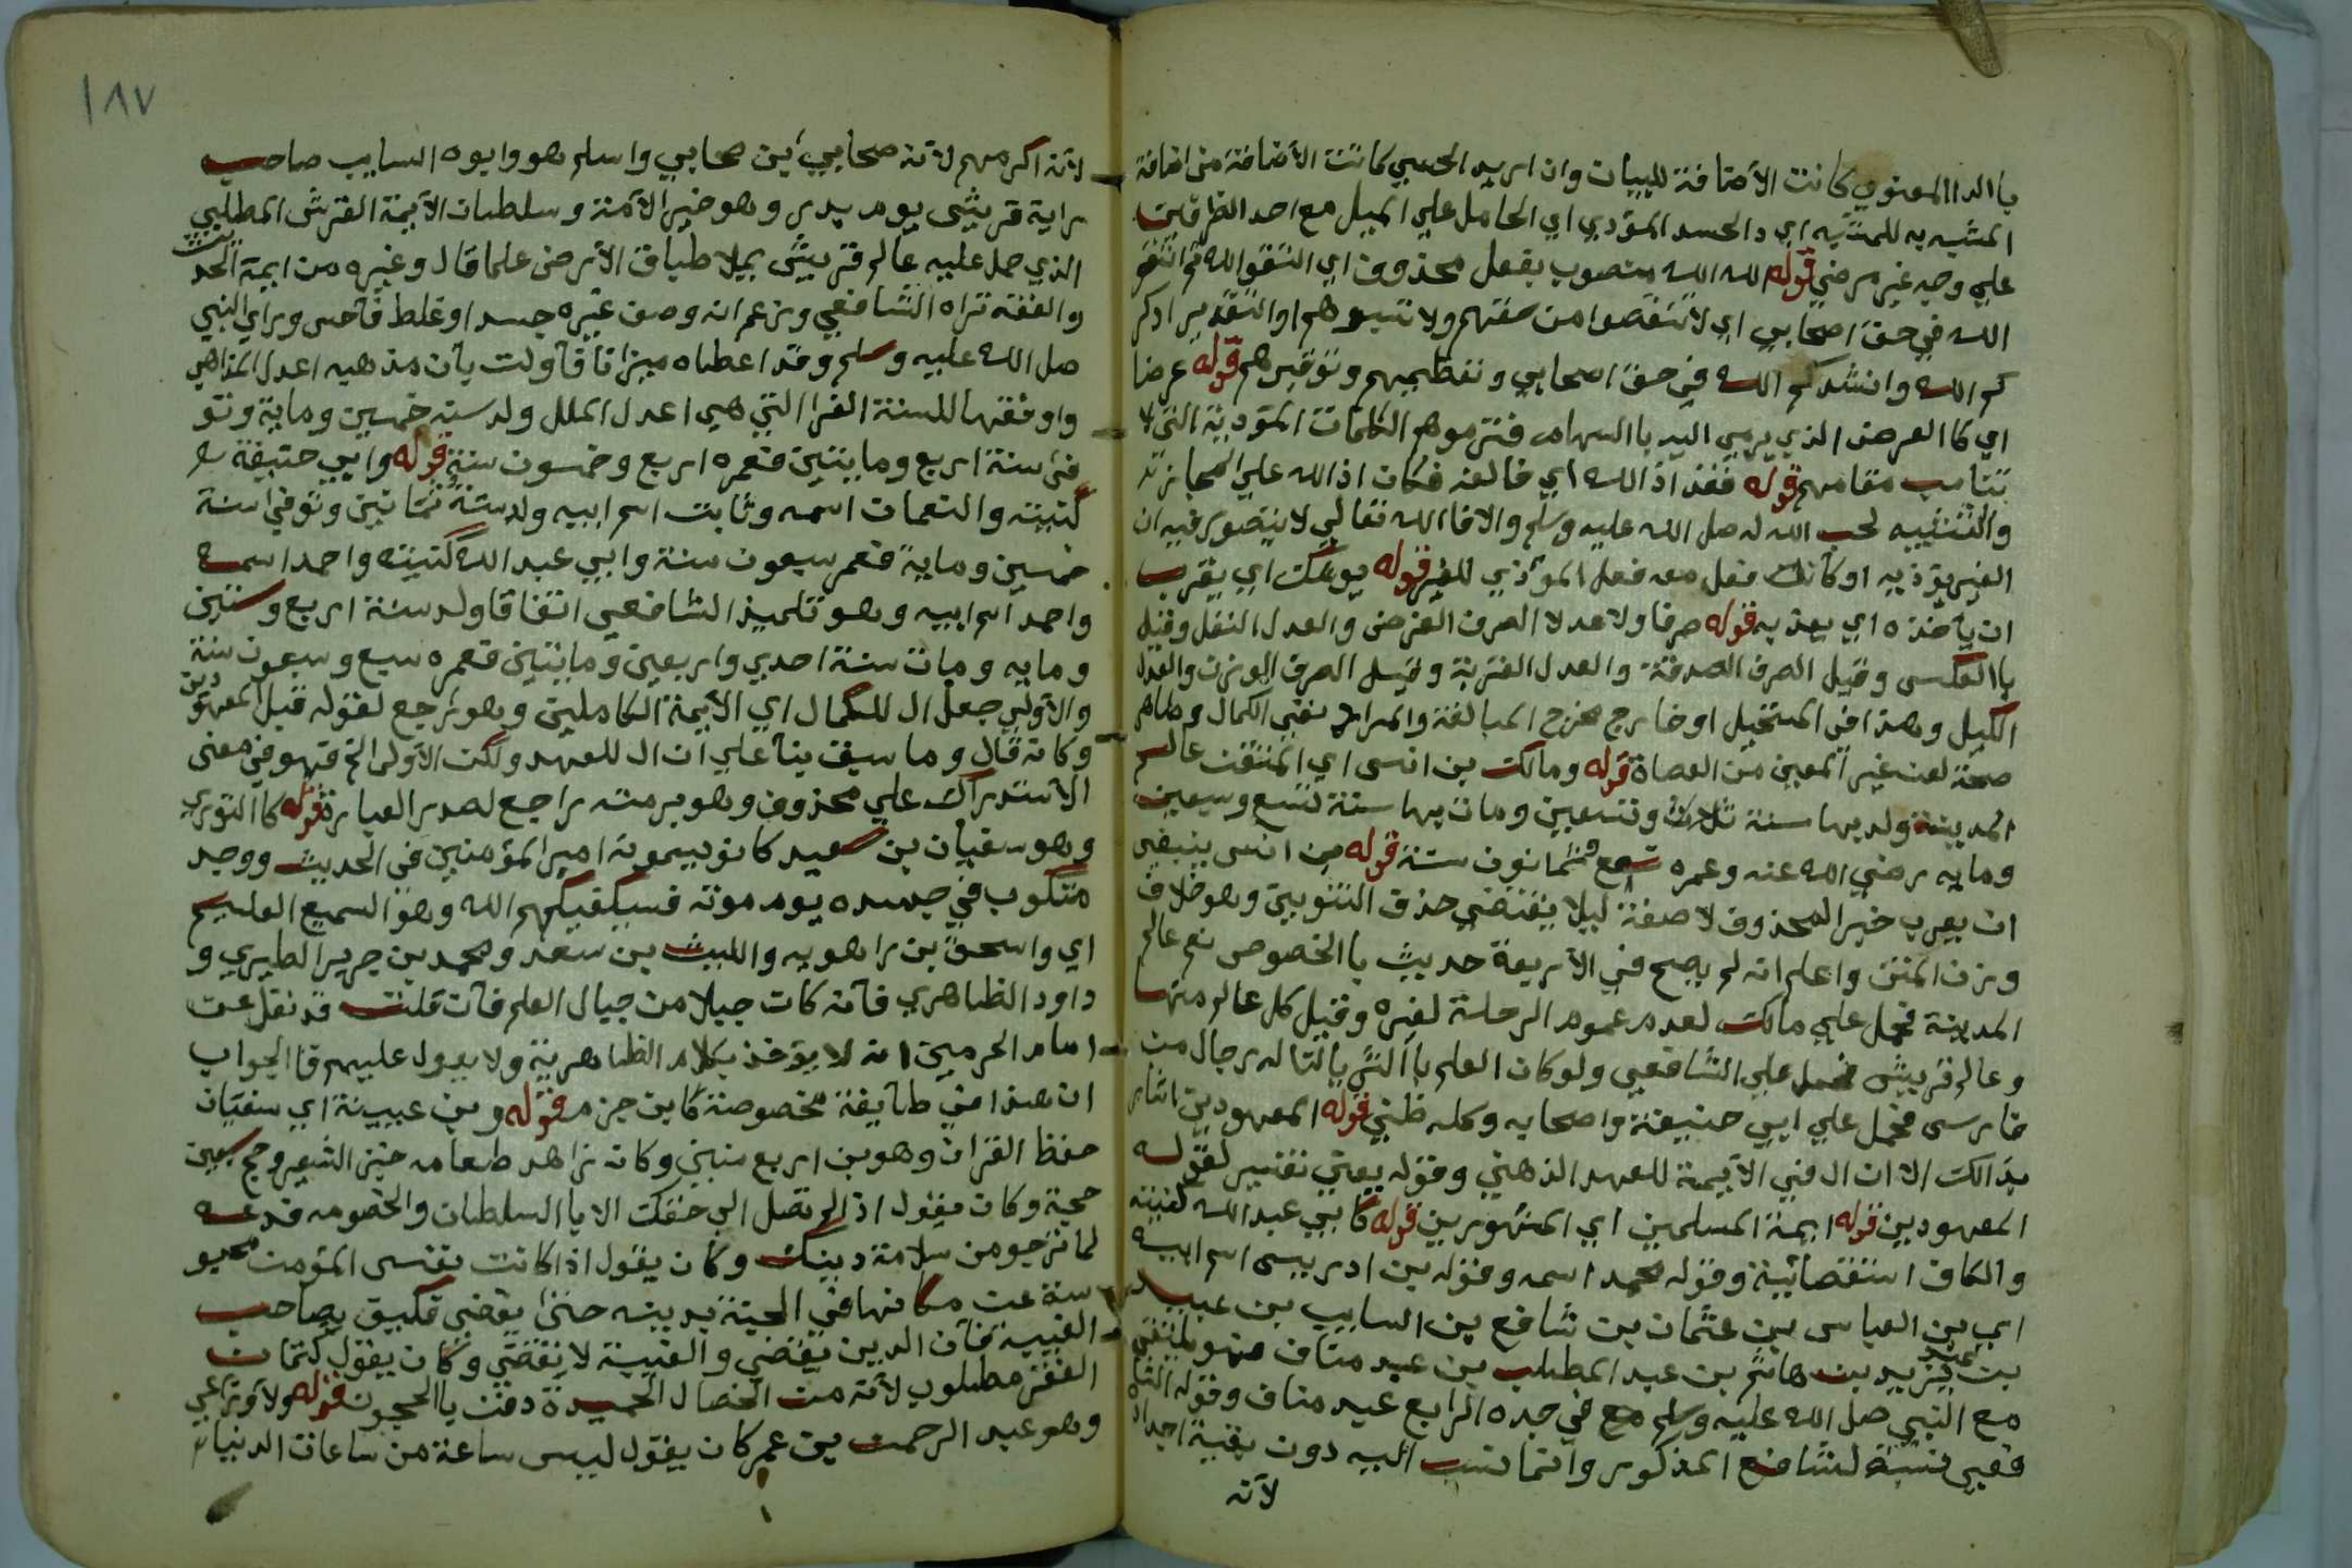 با الدا المعنوي كانت الأضافة للبيان وان اريد الحسي كانت الأضافة من اضافة
المشبه به للمشبه اي د الحسد المؤدي اي الحامل علي الميل مع احد الطرفين
علي وجه غير مرضي قوله لله الله منصوب بفعل محذوف اي اتقو الله ثم اتقو
الله في حق اصحابي اي لا تنقصوا من حقهم ولا تسبوهم او التقدير اذكر
كم الله وانشدكم الله في حق اصحابي وتعظيمهم وتوقيرهم قوله عرضا
اي كا الغرض الذي يرمي اليه با السهام فترموهم الكلمات المؤدية التي لا
تناسب مقامهم قوله فقد اذ الله اي خالفه فكان اذ الله علي المجاز
والتنبيه لحب الله له صل الله عليه وسلم والا فا الله تعالي لا يتصور فيه ان
الغير يؤذيه او كأنك فعل معه فعل المؤذي للغير قوله يوشك اي يقرب
ان يأخذه اي يعذبه قوله صرفا ولا عدلا الصرف الفرض والعدل النفل وقيل
با العكس وقيل الصرف الصدقة والعدل القربة وقيل الصرف الوزن والعدل
الكيل وهذا في المستحيل او خارج مخرج المبالغة والمراد نفي الكمال وظاهر
صحة لعن غير المعين من العصاة قوله ومالك بن انس اي المتقن عالم
المدينة ولد بها سنة ثلاث وتسعين ومات بها سنة تسع وسبعين
وماية رضي الله عنه وعمره تسع وثمانون سنة قوله من انس ينبغي
ان يعرب خبر المحذوف لا صفة ليلا يقتضي حذف التنوين وهو خلاف
وزن المتن واعلم انه لم يصح في الأربعة حديث با الخصوص نعم عالم
المدينة فحمل علي مالك لعدم عموم الرحلة لغيره وقيل كل عالم منها
وعالم قريش فحمل علي الشافعي ولو كان العلم با الثريا لتاله رجال من
فارس فحمل علي ابي حنيفة واصحابه وكله ظني قوله المعهودين اشار
بذالك الا ان ال في الأيمة للعهد الذهني وقوله يعني تفسير لقوله
المعهودين قوله ايمة المسلمين اي المشهورين قوله كأبي عبد الله كنيته
والكاف استقصائية وقوله محمد اسمه وقوله بن ادريس اسم ابيه
ابي بن العباس بن عثمان بن شافع بن السايب بن عبيد
بن عبد يزيد بن هاشم بن عبد المطلب بن عبد مناف فهو ملتقي
مع النبي صل الله عليه وسلم مع في جده الرابع عبد مناف وقوله الشا
فعي نسبة لشافع المذكور وانما نسب اليه دون بقية اجداد
لأنه
١٨٧
لأنه اكرمهم لأنه صحابي ابن صحابي واسلم هو وابوه السايب صاحب
راية قريش يوم بدر وهو خير الأمة وسلطان الأيمة القرشي المطلبي
الذي حمل عليه عالم قريش يملا طباق الأرض علما قال وغيره من ايمة الحديث
والفقه نراه الشافعي وزعم ان وصف غيره حسد او غلط فآحس وراي النبي
صل الله عليه وسلم وقد اعطاه ميزانا فآولت بأن مذهبه اعدل المذاهب
واوفقها للسنة الغرا التي هي اعدل الملل ولد سنه خمسين وماية وتو
في سنة اربع وماينتين فعمره اربع وخمسون سنة قوله وابي حنيفة
كنيته والنعمان اسمه وثابت اسم ابيه ولد سنة ثمانين وتوفي سنة
خمسين وماية فعمر سبعون سنة وابي عبد الله كنيته واحمد اسمه
واحمد اسم ابيه وهو تلميذ الشافعي اتفاقا ولد سنة اربع وستين
ومايه ومات سنة احدي واربعين وماينتين فعمره سبع وسبعون سنة
والأولي جعل ال للكمال اي الأيمة الكاملين وهو يرجع لقوله قبل المعهودين
وكانه قال وما سبق بنآ علي ان ال للعهد ولكن الأولي الخ فهو في معني
الأستدراك علي محذوف وهو برمته راجع لصدر العبارة قوله كا الثوري
وهو سفيان بن سعيد كانو يسمونه امير المؤمنين في الحديث ووجد
مكتوب في جسده يوم موته فسيكفيكهم الله وهو السميع العليم
اي واسحق بن راهويه والليث بن سعد ومحمد بن جرير الطبري و
داود الظاهري فآنه كان جبلا من جبال العلم فآن قلت قد نقل عن
امام الحرمين انه لا يؤخذ بكلام الظاهرية ولا يعول عليهم فا الجواب
ان هذا في طآيفة مخصوصة كابن حزم قوله وبن عيينة اي سفيان
حفظ القران وهو بن اربع سنين وكان زاهد طعامه خبز الشعير وحج سبعين
حجة وكان يقول اذ لم تصل الي حقك الا با السلطان والخصومه فدعه
لما ترجو من سلامة دينك وكان يقول اذا كانت نفس المؤمن محبو
سة عن مكانها في الجنة بدينه حتي يقضي فكيف بصاحب
الغيبه فآن الدين يقضي والغيبة لا تقضي وكان يقول كتمان
الفقر مطلوب لأنه من الخصال الحميدة دفن با الحجون قوله ولأوزاعي
وهو عبد الرحمن بن عمر كان يقول ليس ساعة من ساعات الدنيا